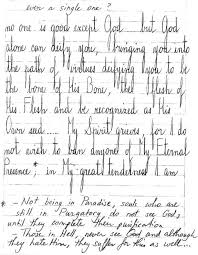 even a single one?
no one is good except God - but God
alone can deify you, bringing you into
the path of virtues deifying you to be
the bone of His Bone, the flesh of
His Flesh and be recognised as His
Own seed.... My Spirit grieves for I do
not wish to ban anyone of My Eternal
Presence;* in My great tenderness I am
* - Not being in Paradise, souls who are
still in Purgatory, do not see God,
until they complete their purification.
- Those in Hell, never see God and although
they hate Him, they suffer for this as well....